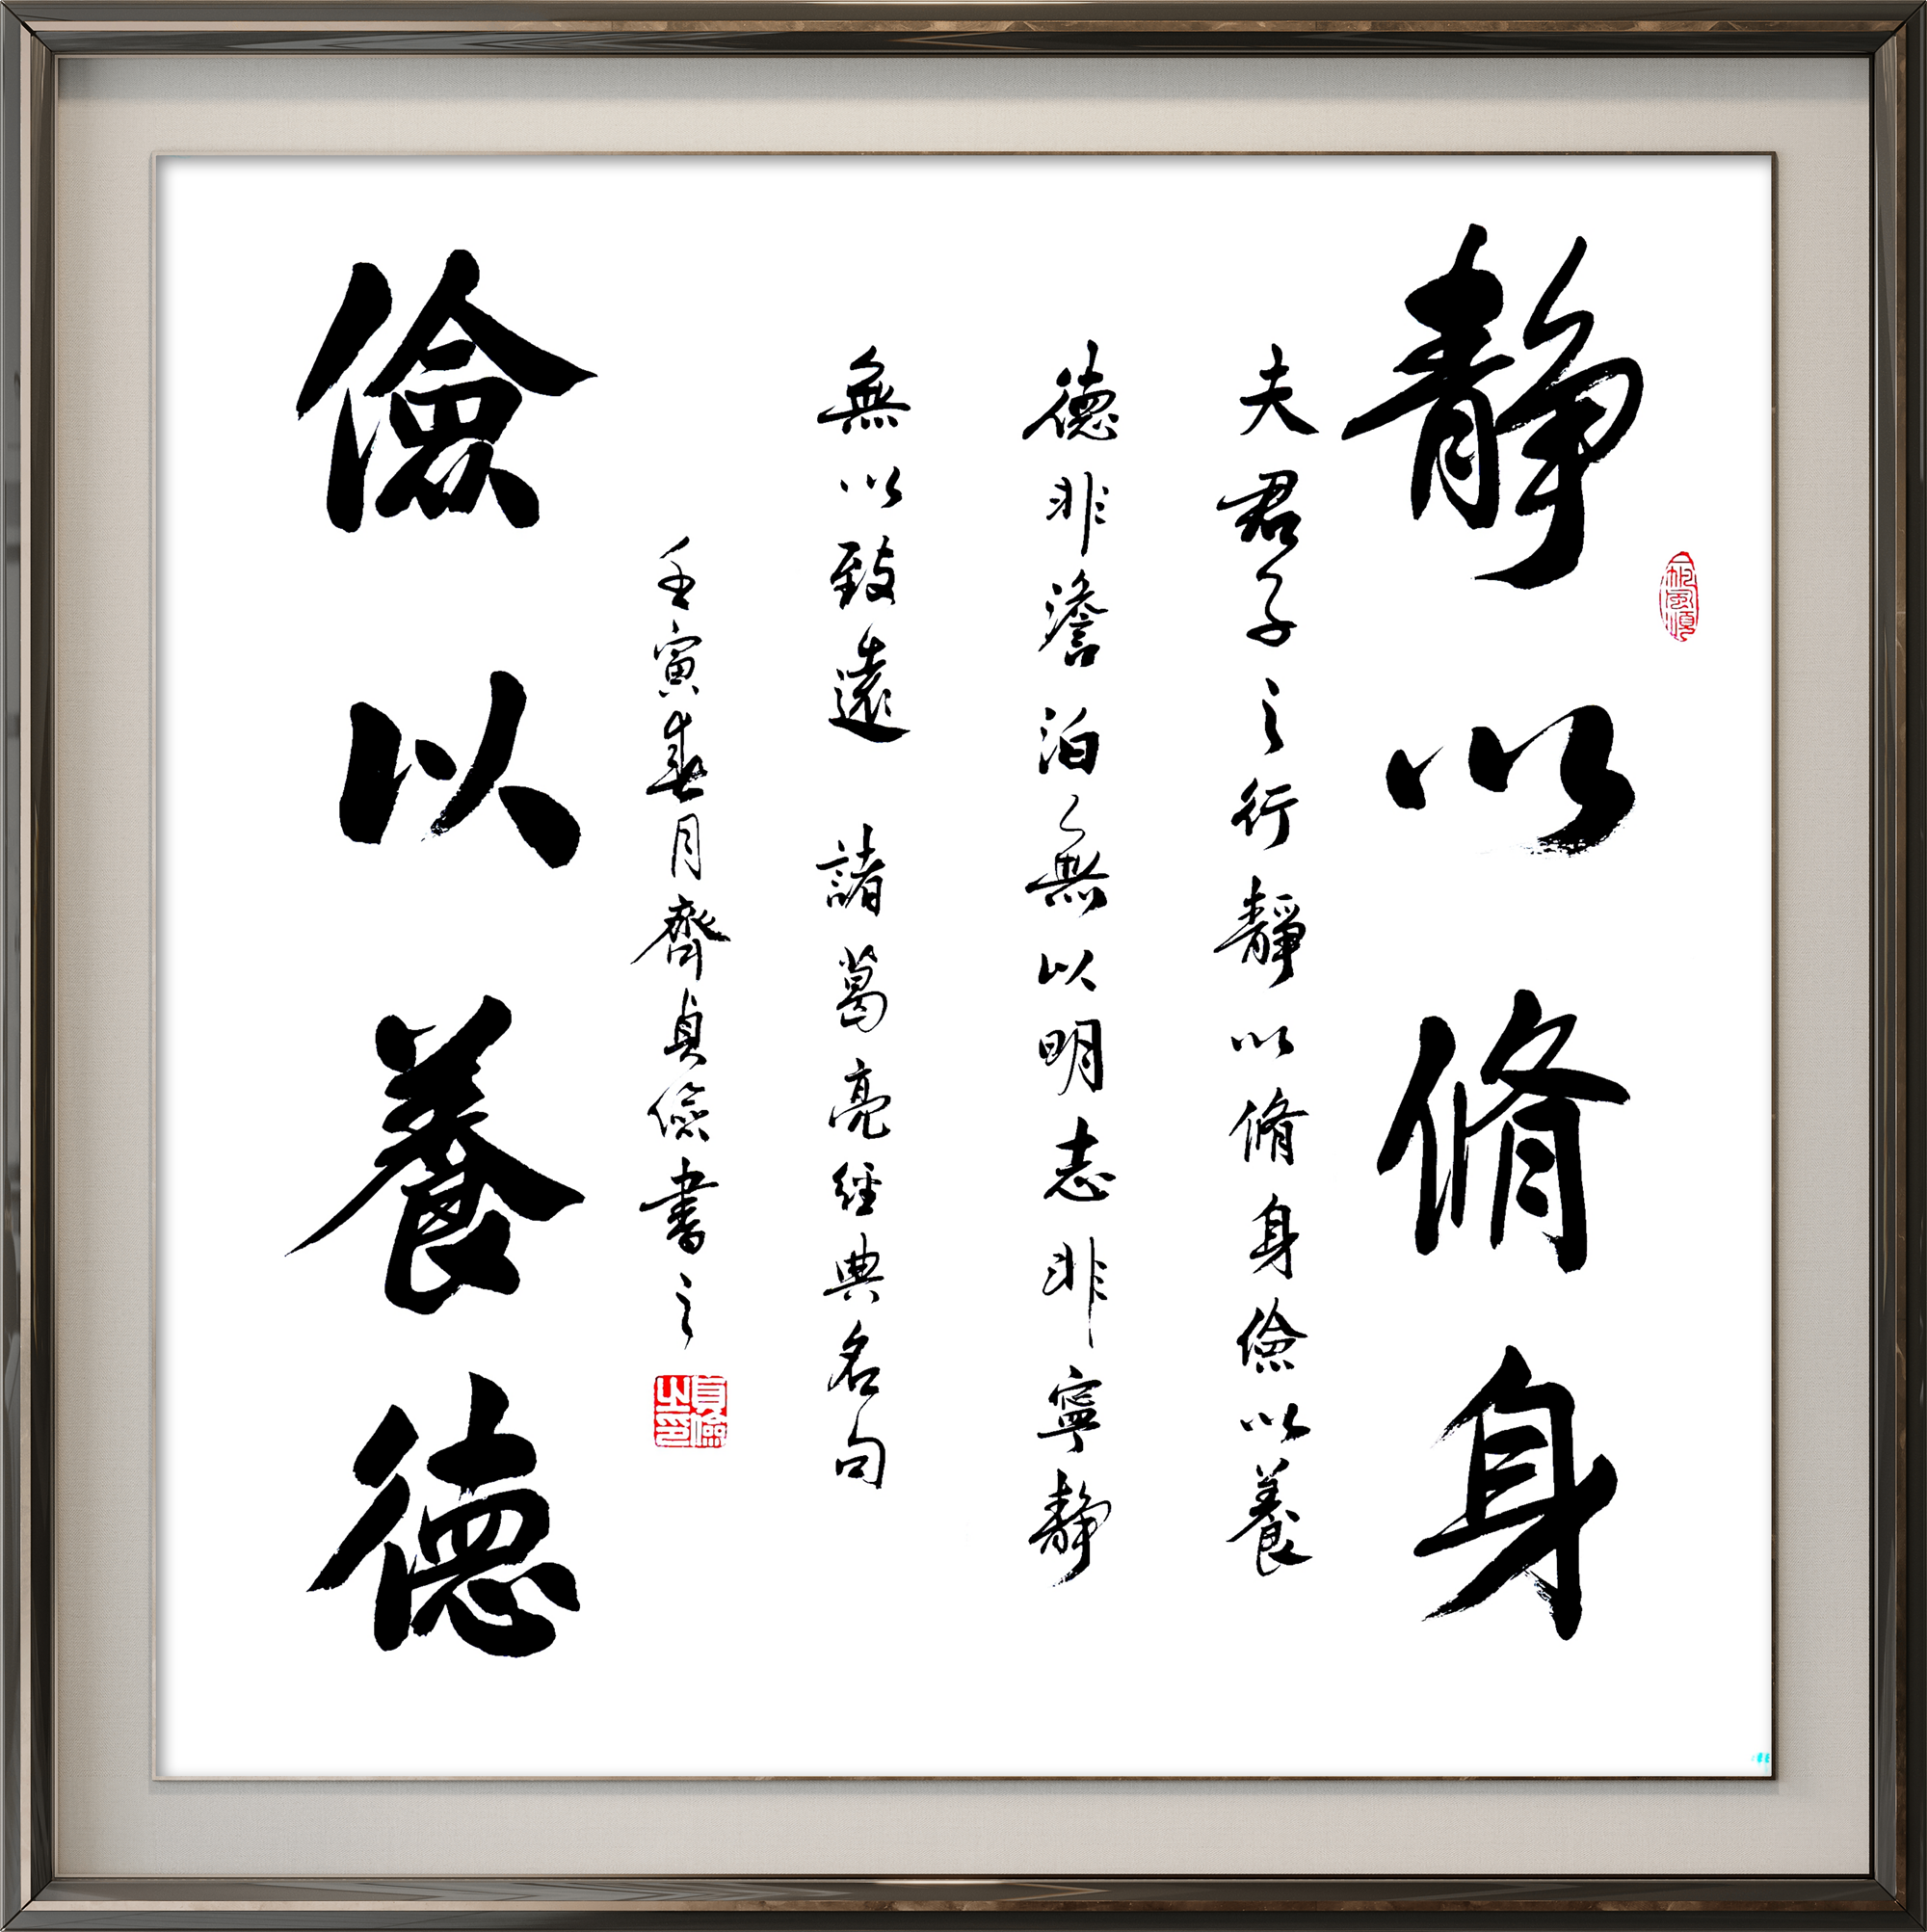 静以脩身
夫君子之行靜以脩身儉以養
德非澹泊無以明志非寧静
無以致遠 諸葛亮經典名句
壬寅春月齊貞儉書之
貞儉之印
儉以養德